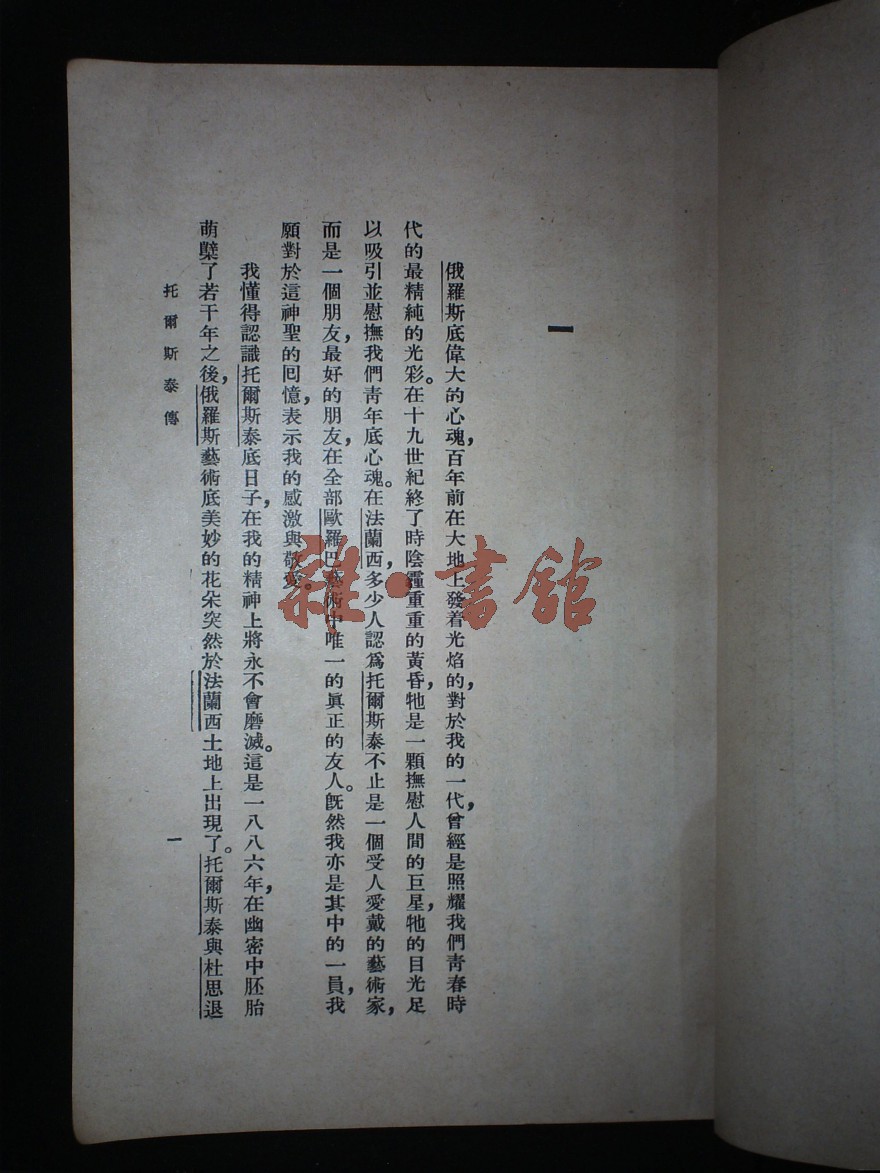 一
俄羅斯底偉大的心魂，百年前在大地上發着光焰的，對於我的一代，曾經是照耀我們青春時
代的最精純的光彩。在十九世紀終了時陰霾重重的黃昏，牠是一顆撫慰人間的巨星，牠的目光足
以吸引並慰撫我們青年底心魂。在法蘭西，多少人認爲托爾斯泰不止是一個受人愛戴的藝術家，
而是一個朋友，最好的朋友，在全部歐羅巴藝術中唯一的眞正的友人。旣然我亦是其中的一員，我
願對於這神聖的回憶，表示我的感激與敬愛。
我懂得認識托爾斯泰底日子，在我的精神上將永不會磨滅。這是一八八六年，在幽密中胚胎
萌櫱了若干年之後，俄羅斯藝術底美妙的花朵突然於法蘭西土地上出現了。托爾斯泰與杜思退
托爾斯泰傳
一
雜·書館